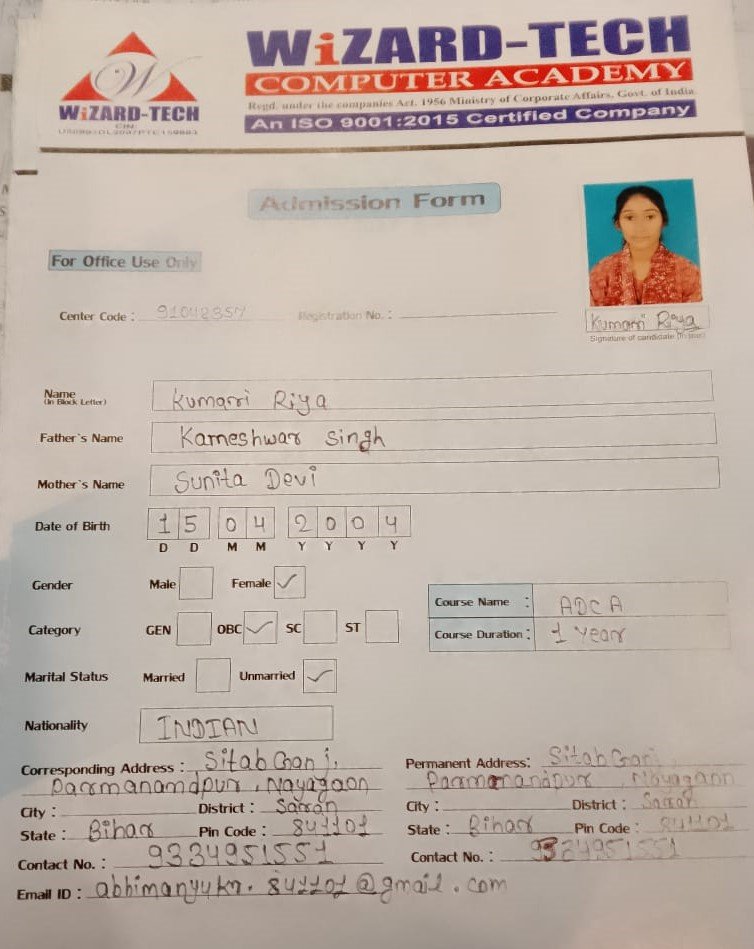 WiZARD-TECH
COMPUTER ACADEMY
Regd. under the companies Act. 1956 Ministry of Corporate Affairs, Govt. of India
An ISO 9001:2015 Certified Company
W
WiZARD-TECH
CIN:
Admission Form
For Office Use Only
Center Code : 91042357 Registration No. :
Kumarri Riya
Signature of candidate (In Box)
Name Kumarri Riya
(In Block Letter)
Father`s Name Kameshwar Singh
Mother`s Name Sunita Devi
Date of Birth 15 04 2004
D D M M Y Y Y Y
Gender Male Female ✓
Course Name : ADCA
Category GEN OBC ✓ SC ST
Course Duration : 1 Year
Marital Status Married Unmarried ✓
Nationality INDIAN
Corresponding Address : Sitab Ganj,
Parmanamdpur, Nayagaon
City : District : Saran
State : Bihar Pin Code : 841101
Contact No. : 9334951551
Permanent Address: Sitab Ganj,
Parmanandpur, Nayagaon
City : District : Saran
State : Bihar Pin Code : 841101
Contact No. : 9334951551
Email ID : abhimanyukr.841101@gmail.com